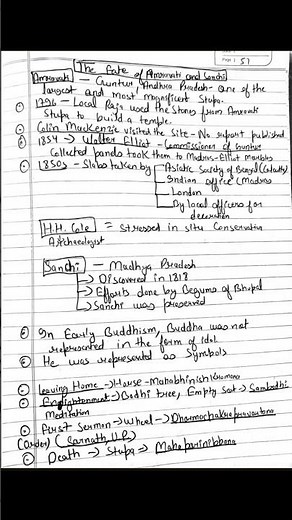 Page 51
The Fate of Amravati and Sanchi
Amravati - Guntur, Andhra Pradesh - one of the
largest and most magnificent Stupa.
1796 - Local Raja used the Stones from Amravati
Stupa to build a temple.
Colin Mackenzie visited the Site - No report published
1854 → Walter Elliot - Commissioner of Guntur
Collected panels took them to Madras - Elliot Marbles
1850s - Slabs taken by → Asiatic Society of Bengal (Calcutta)
→ Indian office (Madras
→ London
→ By local officers for
decoration
H.H. Cole = Stressed in situ Conservation
Archeologist
Sanchi - Madhya Pradesh
→ Discovered in 1818
→ Efforts done by Begums of Bhopal
→ Sanchi was preserved
In Early Buddhism, Buddha was not
represented in the form of idol.
He was represented as Symbols
Leaving Home → House - Mahabhinish
Enlightenment → Bodhi tree, Empty Seat → Sambodhi
Meditation
First Sermon → Wheel → Dharmachakrapravartana
(Sarnath, U.P.)
Death → Stupa → Mahaparinibbana